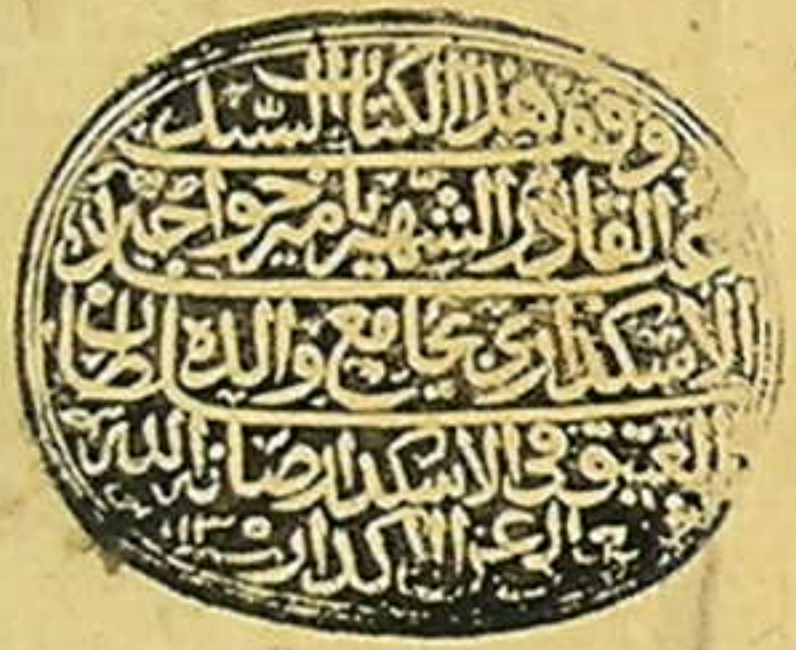 وقف هذا الكتاب السيد
عبد القادر الشهير بامير خواجه
الاسكداري بجامع والده سلطان
العتيق في الاسكدار صانه الله
عن الاكدار